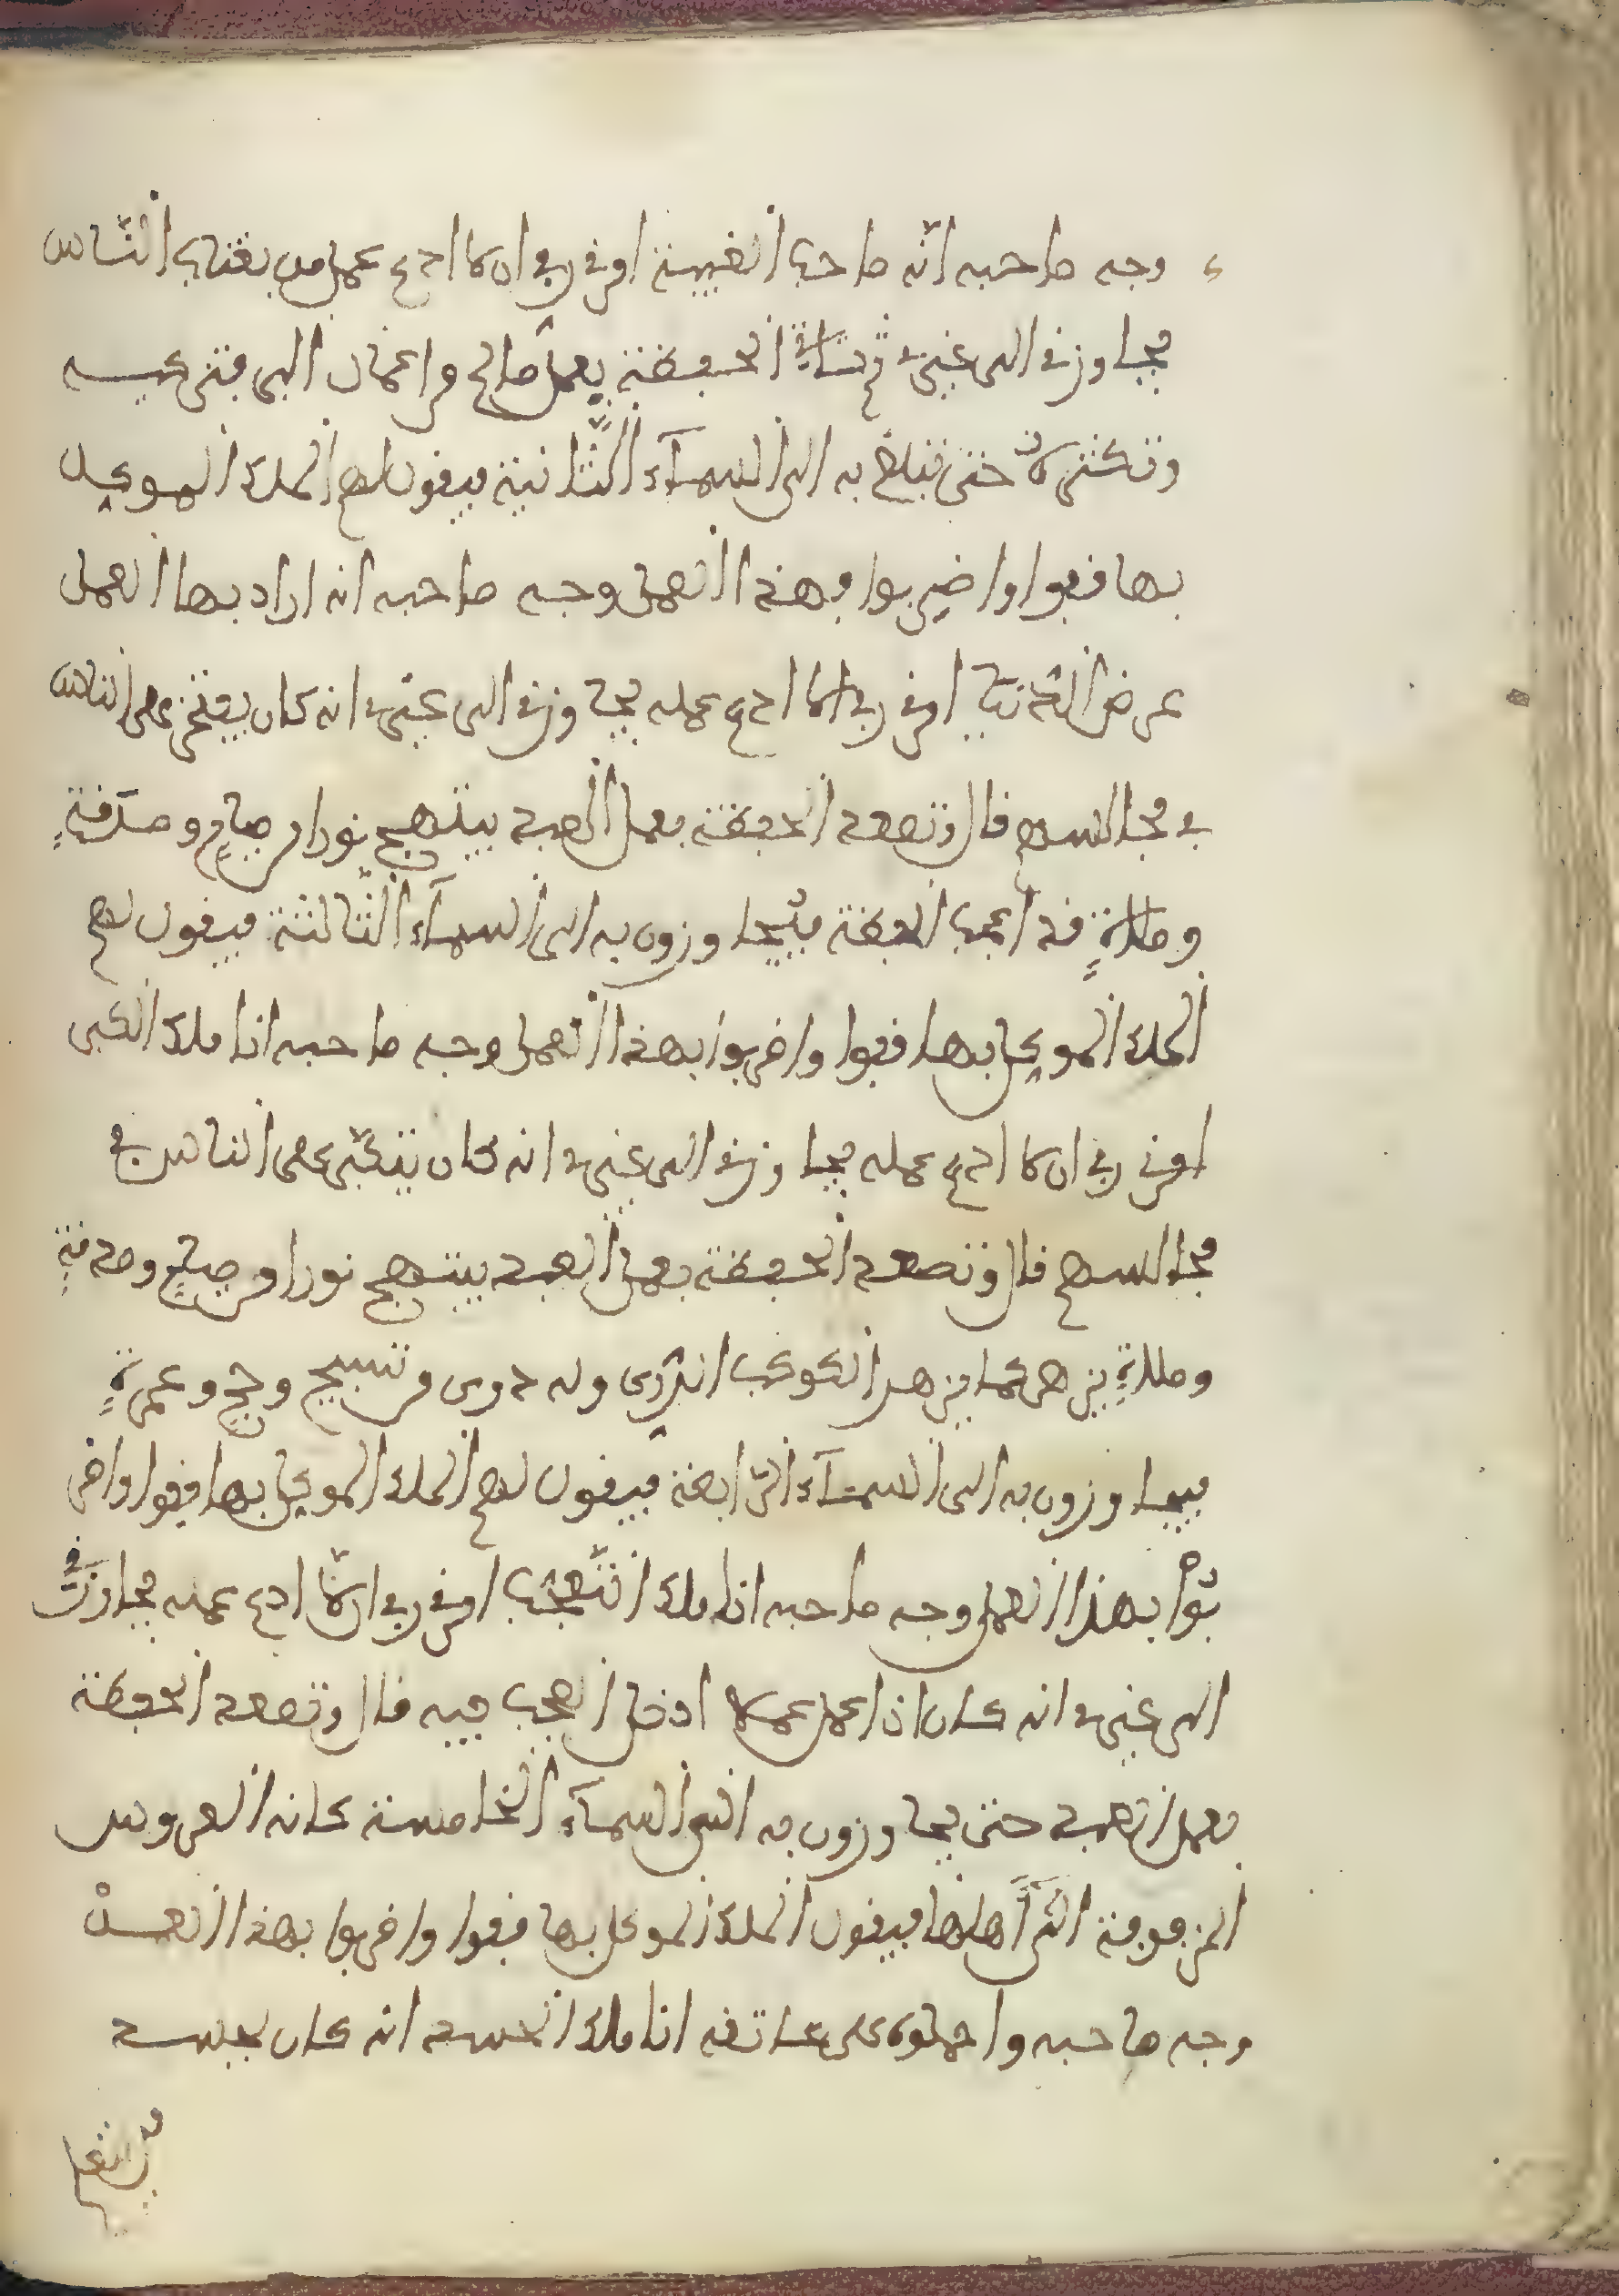 وجه صاحبه انّه صاحب الغيبة امرني ربي ان لا ادع عمل من يغتاب النّاس
يجاوزني الى غيري ثم تاتي الحفظة بعمل صالح من اعمال العبد فتزكيه
وتكثره حتى تبلغ به الى السمآء الثّانية فيقول لهم الملك الموكل
بها قفوا واضربوا بهذا العمل وجه صاحبه انه اراد بها العمل
عرض الدّنيا امرني ربي الا ادع عمله يجاوزني الى غيري انه كان يفتخر على الناس
في مجالسهم قال وتصعد الحفظة بعمل العبد يبتهج نورا من صيامٍ وصدقةٍ
وصلاةٍ قد اعجب الحفظة فيتجاوزون به الى السمآء الثّالثة فيقول لهم
الملك الموكل بها قفوا واضربوا بهذا العمل وجه صاحبه انا ملك الكبر
امرني ربي ان لا ادع عمله يجاوزني الى غيري انه كان يتكبّر على الناس في
مجالسهم قال وتصعد الحفظة بعمل العبد يبتهج نورا من صيامٍ وصدقةٍ
وصلاةٍ يزهر كما يزهر الكوكب الدّرّي وله دوي من تسبيح وحجٍ وعمرةٍ
فيجاوزون به الى السمآء الرّابعة فيقول لهم الملك الموكل بها قفوا واضر
بوا بهذا العمل وجه صاحبه انا ملك العجب امرني ربي ان لا ادع عمله يجاوزني
الى غيري انه كان اذا عمل عملا ادخل العجب فيه قال وتصعد الحفظة
بعمل العبد حتى يجاوزون به الى السمآء الخامسة كانه العروس
المزفوفة الى اهلها فيقول الملك الموكل بها قفوا واضربوا بهذا العمل
وجه صاحبه واحملوه على عاتقه انا ملك الحسد انه كان يحسد
من يتعلم